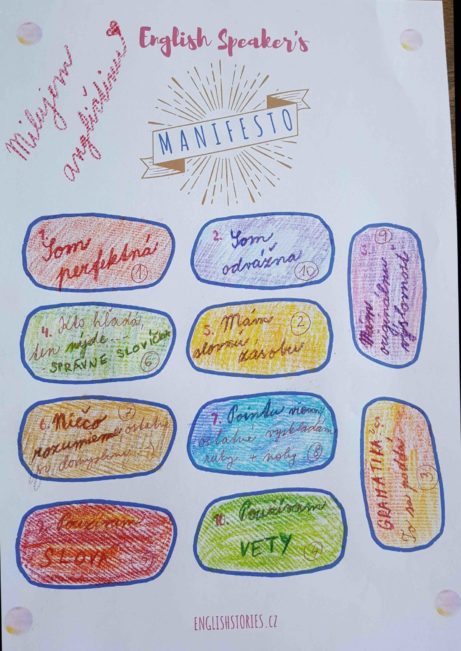 Milujem
angličtinu
English Speaker's
MANIFESTO
1. Som
perfektná
1
2. Som
odvážna
10
3.
Mám
originálnu
výslovnosť
9
4. Kto hľadá,
ten nájde...
SPRÁVNE SLOVÍČKO
6
5. Mám
slovnú
zásobu
2
6. Niečo
rozumiem ostatné
si domyslím
7
7. Pointu viem,
ostatné vyskladám
ruky + nohy
8
GRAMATIKA
To sa poddá
3
9. Používam
SLOVÁ
10. Používam
VETY
4
ENGLISHSTORIES.CZ